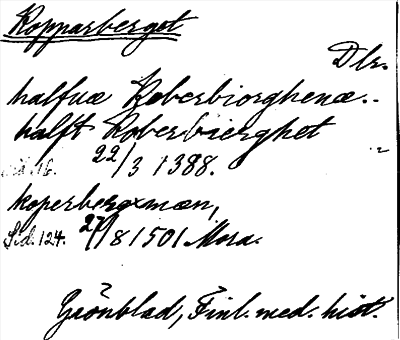 Kopparberget
Dlr.
halfuæ Koberbiorghenæ..
halft Koberbierghet
sid. 16. 22/3 1388.
koperbergxmæn,
Sid. 124. 27/8 1501 Mora.
Grönblad, Finl. med. hist.